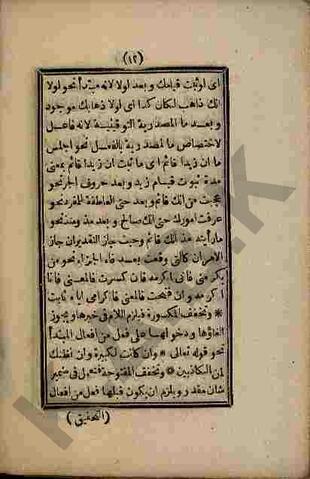 (١٢)
اى لو ثبت قيامك وبعد لولا لانه مبتدأ نحو لولا
انك ذاهب لكان كذا اى لولا ذهابك موجود
وبعد ما المصدرية التوقيتية لانه فاعل
لاختصاص ما المصدرية بالفعل نحو اجلس
ما ان زيدا قائم اى ما ثبت ان زيدا قائم بمعنى
مدة ثبوت قيام زيد وبعد حروف الجر نحو
عجبت من انك قائم وبعد حتى العاطفة للمفرد نحو
عرفت امورك حتى انك صالح وبعد مذ ومنذ نحو
ما رأيته مذ انك قائم وحيث جاز التقديران جاز
الامران كالتى وقعت بعد فاء الجزاء نحو من
يكرمنى فانى اكرمه فان كسرت فالمعنى فانا
اكرمه وان فتحت فالمعنى فاكرامى اياه ثابت
* وتخفف المكسورة فيلزم اللام فى خبرها ويجوز
الغاؤها ودخولها على فعل من افعال المبتدأ
نحو قوله تعالى * وان كانت لكبيرة وان نظنك
لمن الكاذبين * وتخفف المفتوحة فتعمل فى ضمير
شان مقدر ويلزم ان يكون قبلها فعل من افعال
(التحقيق)